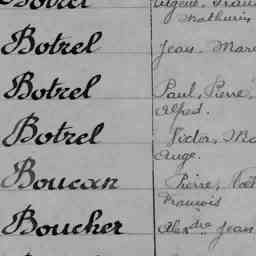 Botrel Eugène, Fran
Mathurin
Botrel Jean, Mari
Botrel Paul, Pierre,
Alfred.
Botrel Victor, Ma
Ange.
Boucan Pierre,
François
Boucher Alexdre Jean